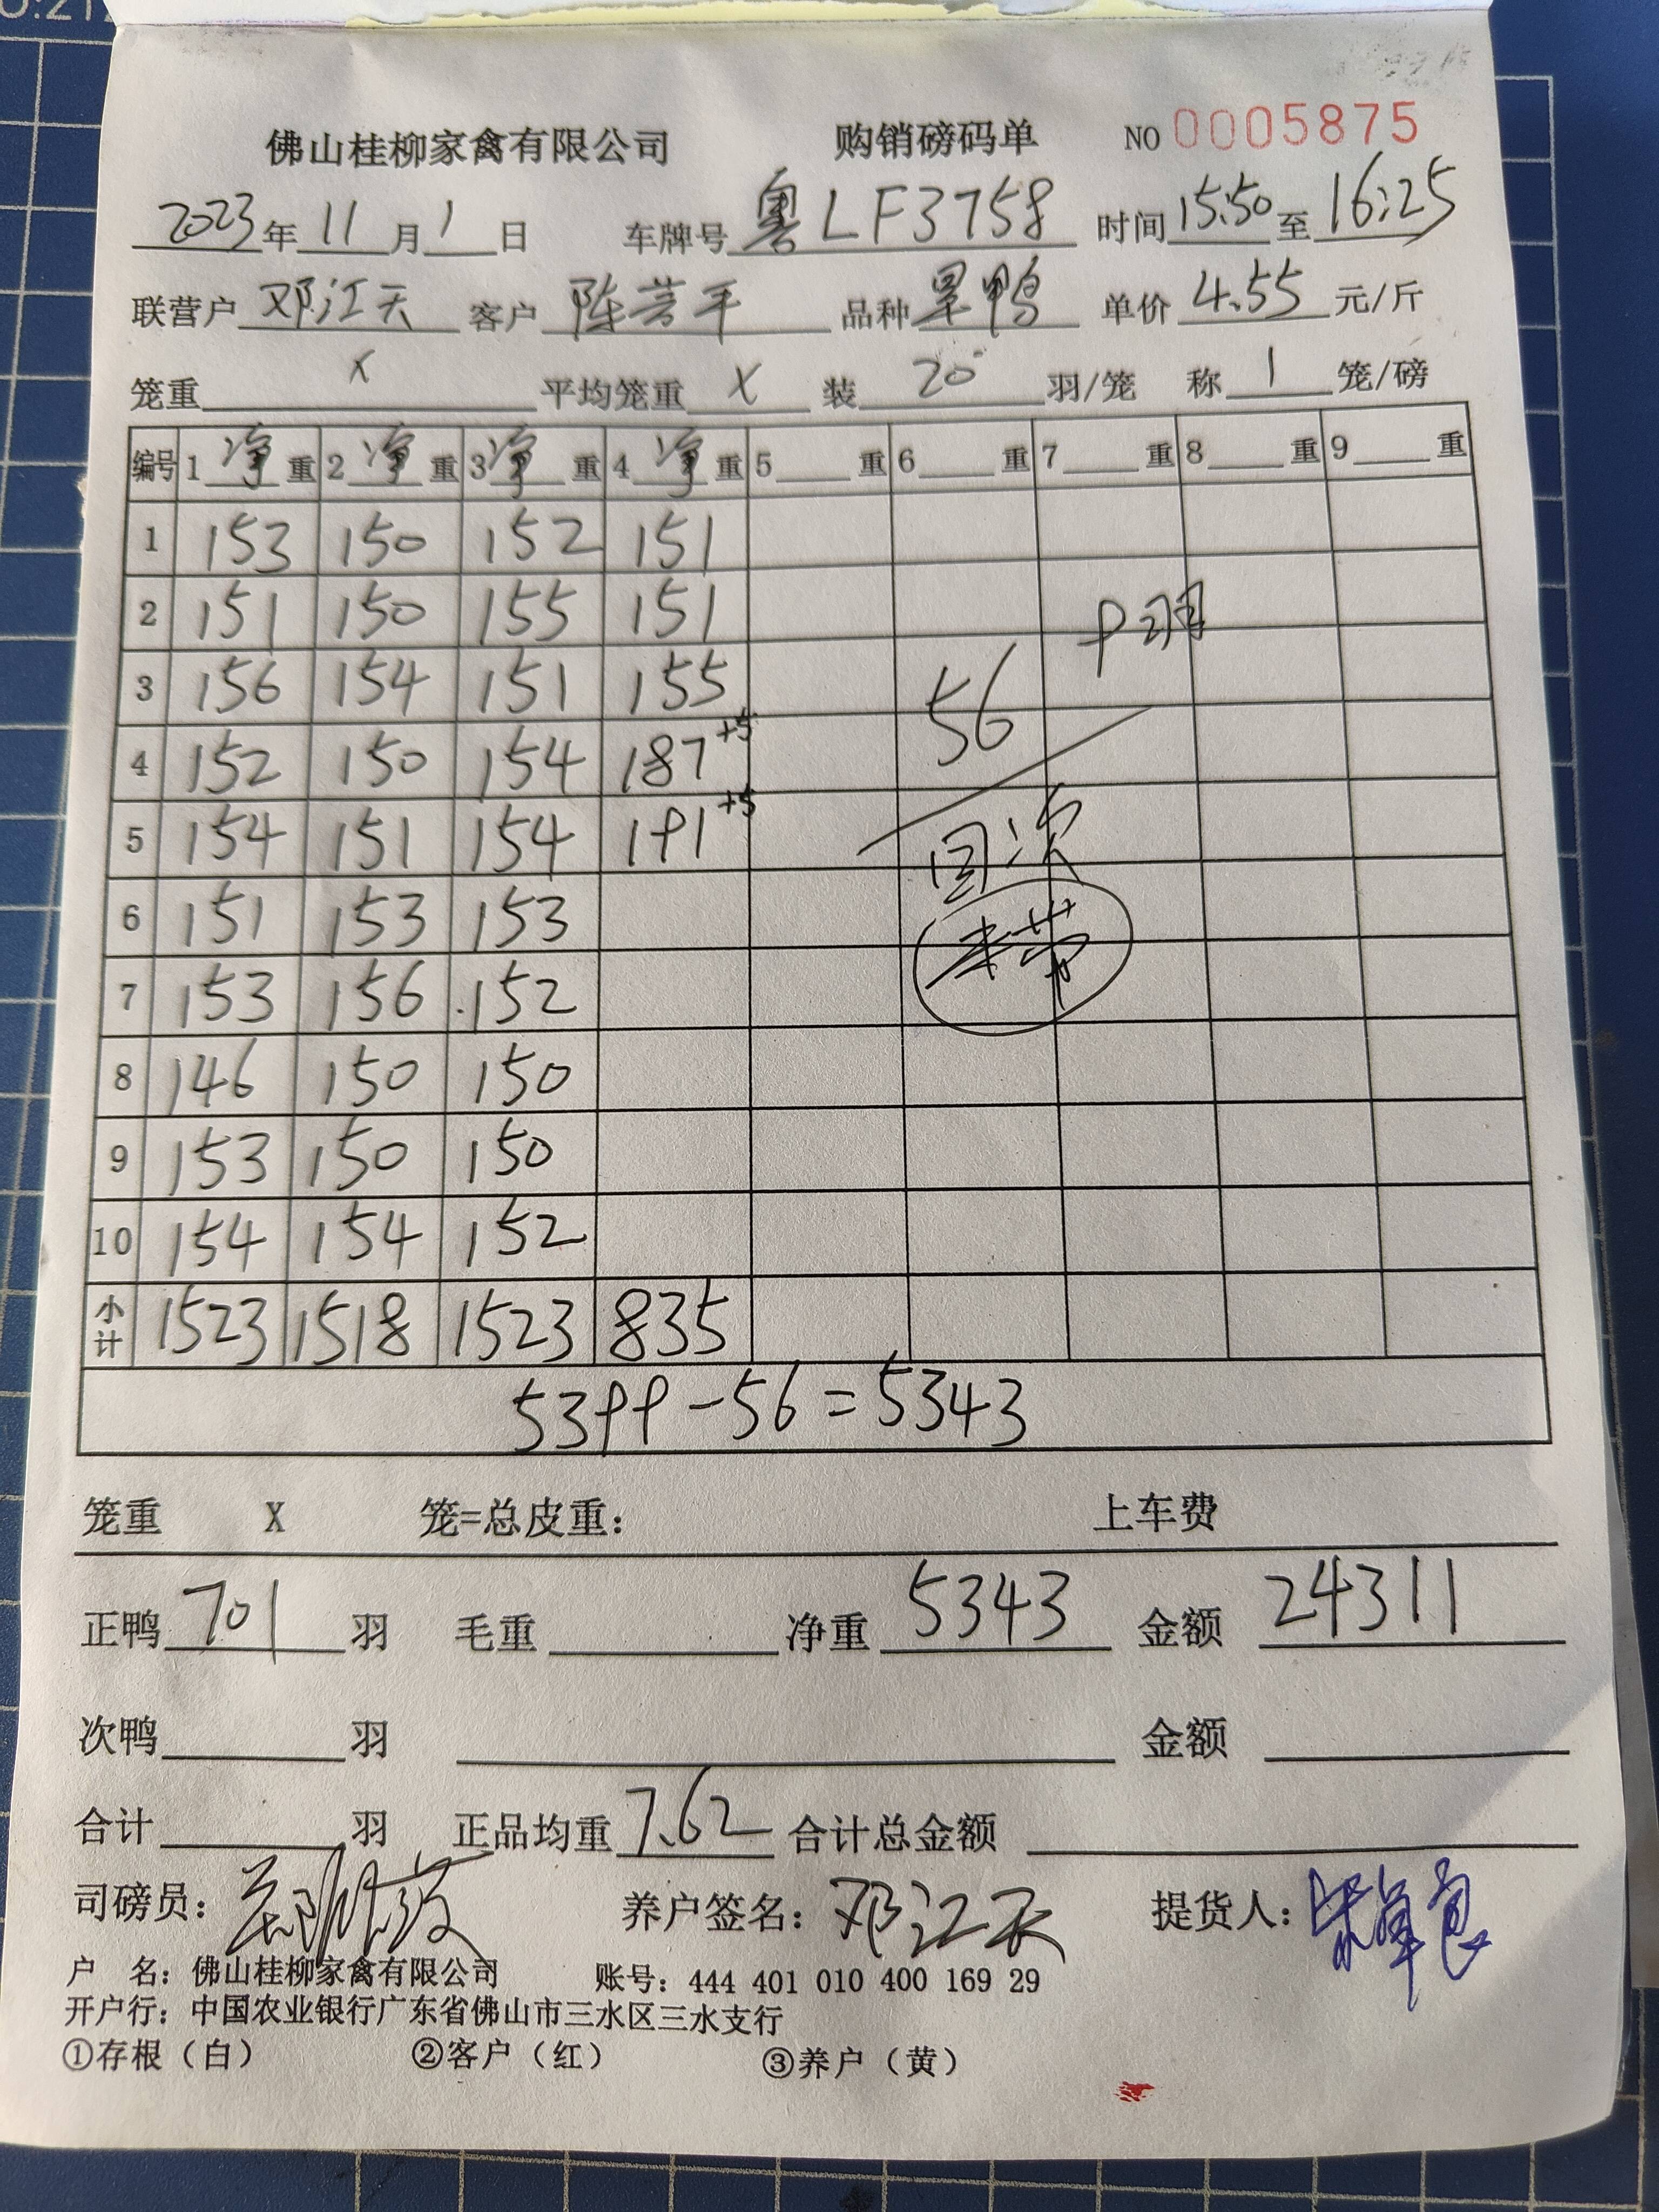 佛山桂柳家禽有限公司 购销磅码单 NO 0005875
2023年11月1日 车牌号 粤LF3758 时间 15:50 至 16:25
联营户 邓江天 客户 陈芸平 品种 旱鸭 单价 4.55 元/斤
笼重 X 平均笼重 X 装 20 羽/笼 称 1 笼/磅
编号 1 净 重 2 净 重 3 净 重 4 净 重 5 重 6 重 7 重 8 重 9 重
1 153 150 152 151
2 151 150 155 151
3 156 154 151 155
4 152 150 154 187+5
5 154 151 154 191+5
6 151 153 153
7 153 156 152
8 146 150 150
9 153 150 150
10 154 154 152
小计 1523 1518 1523 835
56
5399-56=5343
笼重 X 笼=总皮重: 上车费
正鸭 701 羽 毛重 净重 5343 金额 24311
次鸭 羽 金额
合计 羽 正品均重 7.62 合计总金额
司磅员: 养户签名: 邓江天 提货人:
户 名: 佛山桂柳家禽有限公司 账号: 444 401 010 400 169 29
开户行: 中国农业银行广东省佛山市三水区三水支行
①存根(白) ②客户(红) ③养户(黄)